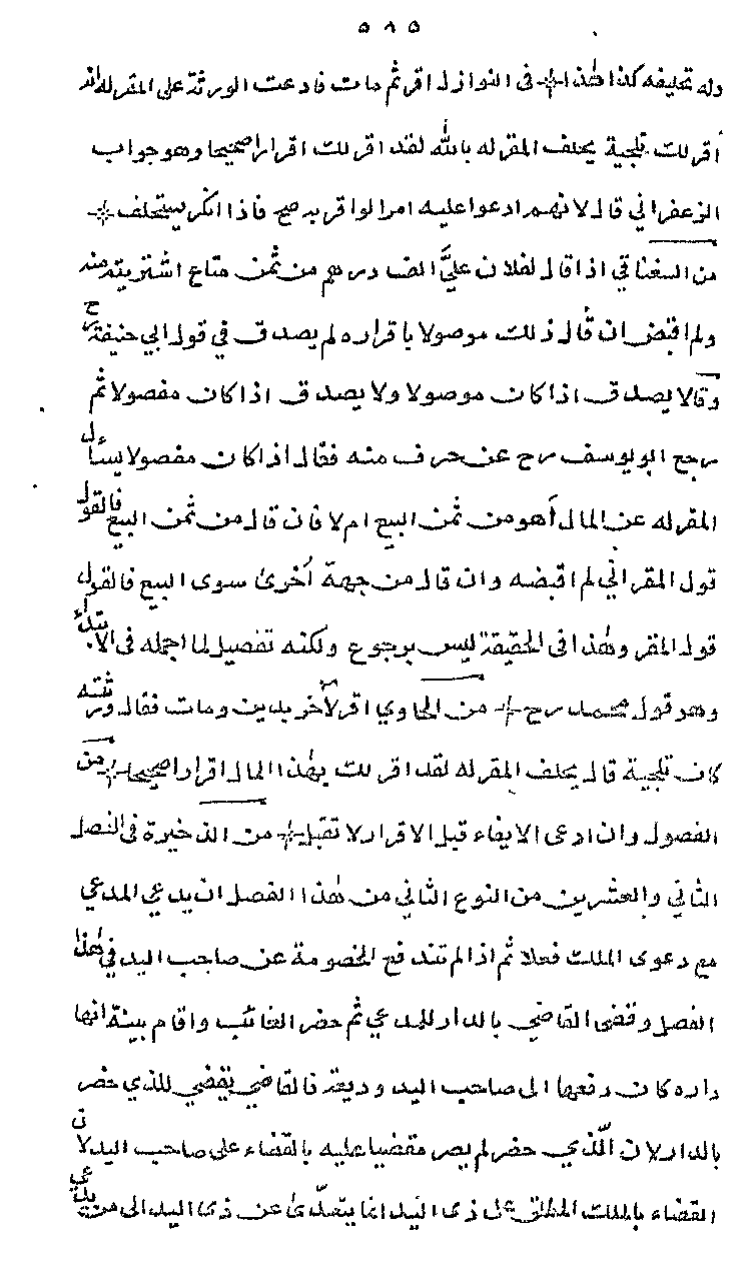 ٥٨٥
وله تحليفه كذا هذا في النوازل اقر ثم مات فادعت الورثة على المقر له انه
أقر لك تلجية يحلف المقر له بالله لقد اقر لك اقرارا صحيحا وهو جواب
الزعفراني قال لانهم ادعوا عليه امرا لو اقر به صح فاذا انكر يستحلف
من السغناقي اذا قال لفلان عليَّ الف درهم من ثمن متاع اشتريته منه
ولم اقبض ان قال ذلك موصولا باقراره لم يصدق في قول ابي حنيفة رح
وقالا يصدق اذا كان موصولا ولا يصدق اذا كان مفصولا ثم
رجع ابو يوسف رح عن حرف منه فقال اذا كان مفصولا يسأل
المقر له عن المال أهو من ثمن البيع ام لا فان قال من ثمن البيع فالقول
قول المقر اني لم اقبضه وان قال من جهة أخرى سوى البيع فالقول
قول المقر وهذا في الحقيقة ليس برجوع ولكنه تفصيل لما اجمله في الابتداء
وهو قول محمد رح من الحاوي اقر لآخر بدين ومات فقال ورثته
كان تلجية قال يحلف المقر له لقد اقر لك بهذا المال اقرارا صحيحا من
الفصول وان ادعى الايفاء قبل الاقرار لا تقبل من الذخيرة في الفصل
الثاني والعشرين من النوع الثاني من هذا الفصل ان يدعي المدعي
مع دعوى الملك فعلا ثم اذا لم تندفع الخصومة عن صاحب اليد في هذا
الفصل وقضى القاضي بالدار للمدعي ثم حضر الغائب واقام بينة انها
داره كان دفعها الى صاحب اليد وديعة فالقاضي يقضي للذي حضر
بالدار لان الّذي حضر لم يصر مقضيا عليه بالقضاء على صاحب اليد لان
القضاء بالملك المطلق على ذى اليد انما يتعدّى عن ذى اليد الى من يدعي